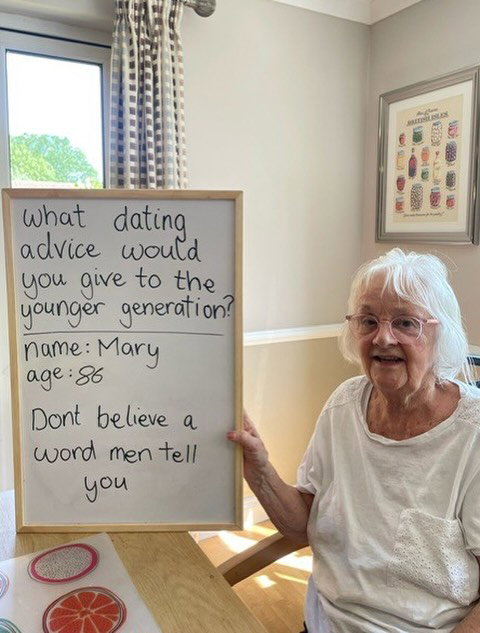 what dating
advice would
you give to the
younger generation?
name: Mary
age: 86
Dont believe a
word men tell
you
BRITISH ISLES